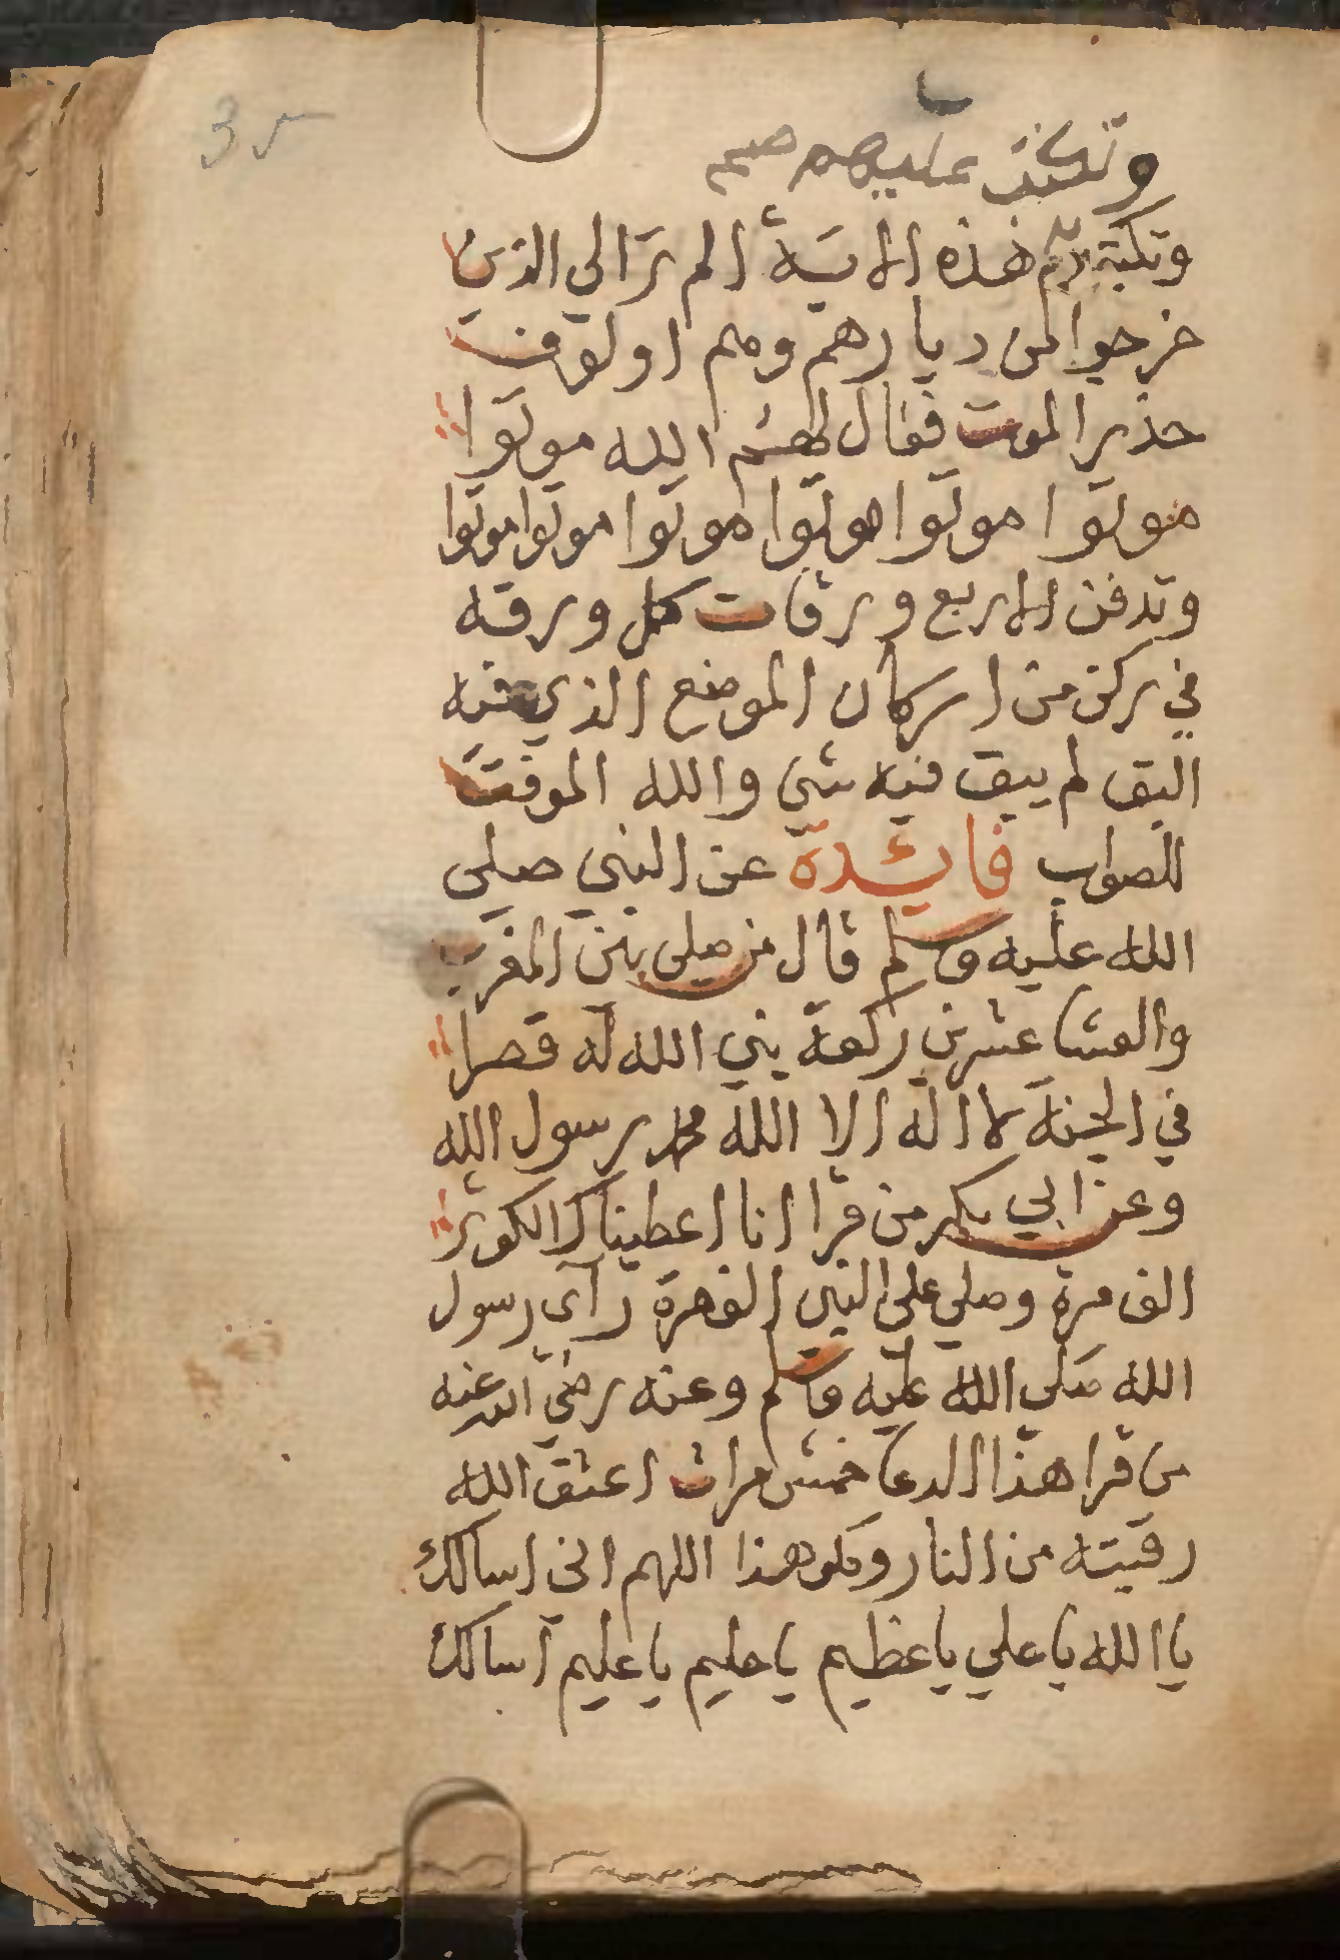 35
وتكتب عليهم صم
وتكتب لهم هذه الاية الم ترا لي الذين
خرجوا من ديارهم وهم اولوف
حذر الموت فقال لهم الله موتوا
موتوا موتوا موتوا موتوا موتوا موتوا
وتدفن الاربع ورقات كل ورقه
في ركن من اركان الموضع الذي فيه
البق لم يبق فيه شي والله الموفق
للصواب فايدة عن النبي صلى
الله عليه وسلم قال من صلى بين المغرب
والعشا عشرين ركعة بني الله له قصرا
في الجنة لا اله الا الله محمد رسول الله
وعن ابي بكر من قرا انا اعطيناك الكوثر
الف مرة وصلي على النبي الف مرة رآى رسول
الله صلى الله عليه وسلم وعنه رضي الله عنه
من قرا هذا الدعا خمس مرات اعتق الله
رقبته من النار وهو هذا اللهم انى اسالك
يا الله يا علي يا عظيم يا حليم يا عليم اسالك